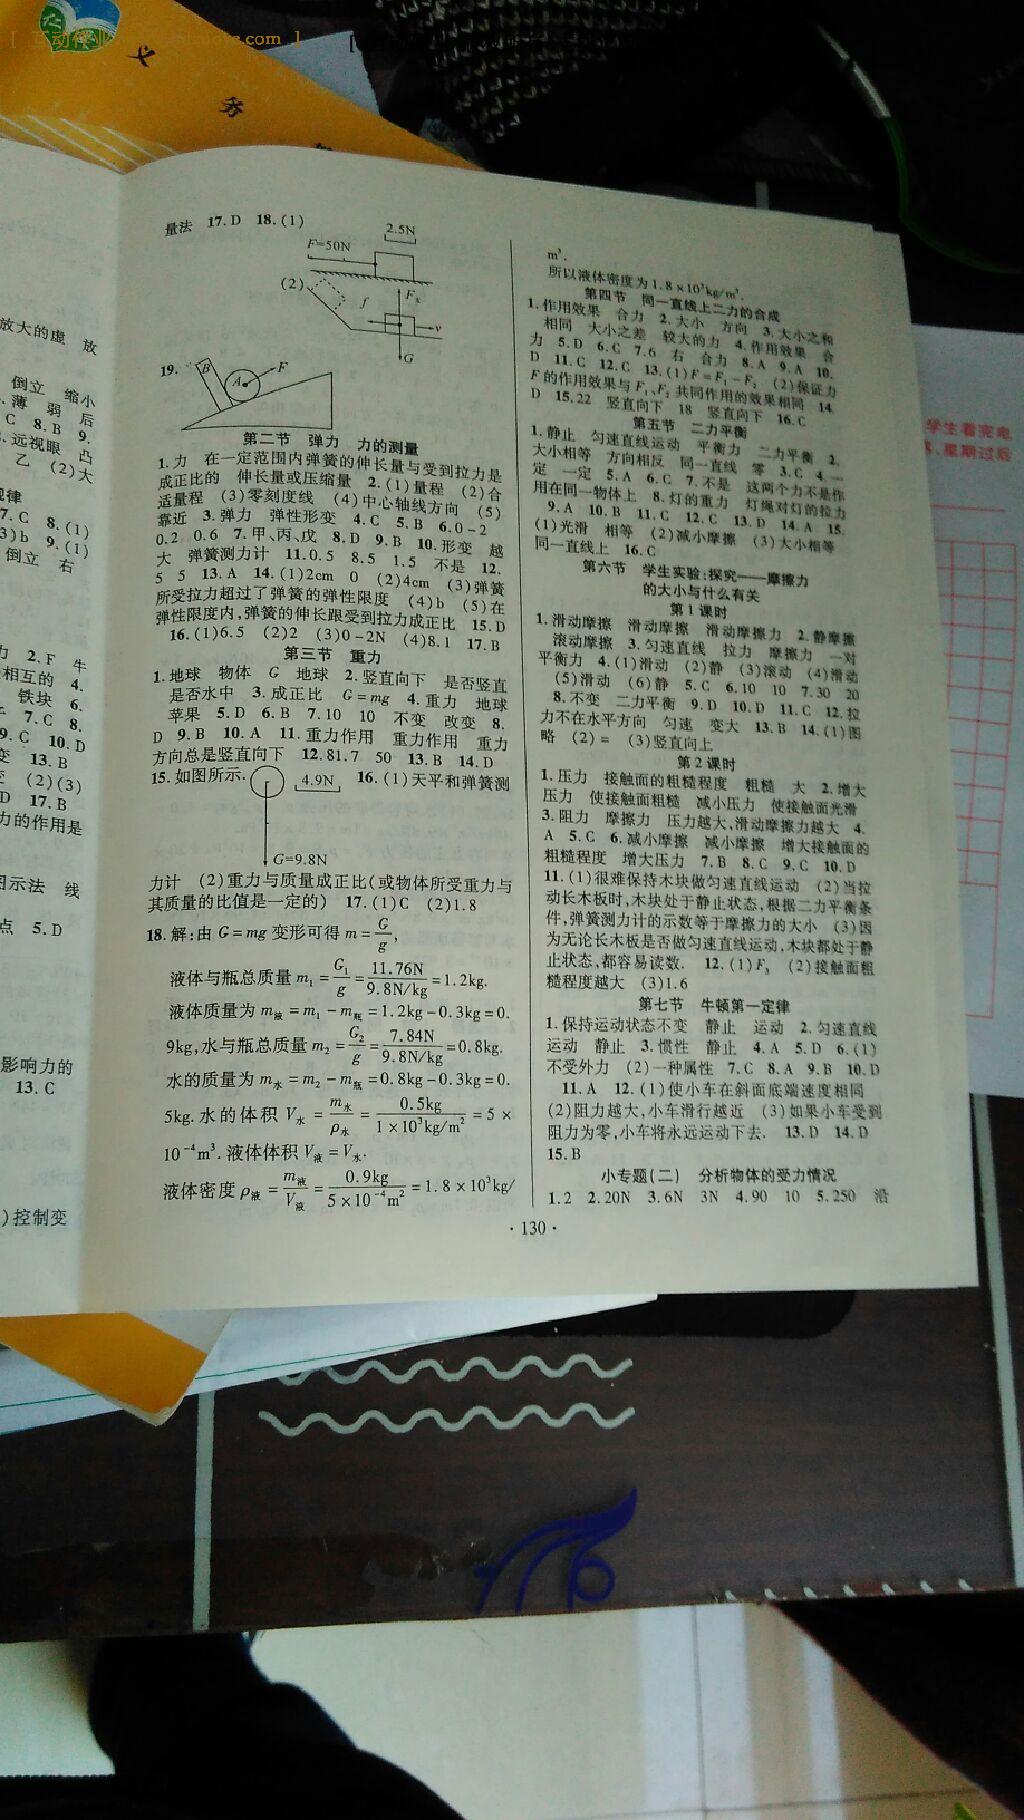 [ 互动作业
.com ]
义
务
放大的虚 放
倒立 缩小
薄 弱 后
C 8.B 9.
远视眼 凸
乙 (2)大
规律
7.C 8.(1)
)b 9.(1)
倒立 右
力 2.F 牛
相互的 4.
铁块 6.
7.C 8.
9.C 10.D
变 13.B
(2)(3)
D 17.B
力的作用是
图示法 线
点 5.D
影响力的
13.C
)控制变
量法 17.D 18.(1)
2.5N
F=50N
(2)
f
v
G
19.
B
A
F
第二节 弹力 力的测量
1.力 在一定范围内弹簧的伸长量与受到拉力是
成正比的 伸长量或压缩量 2.(1)量程 (2)合
适量程 (3)零刻度线 (4)中心轴线方向 (5)
靠近 3.弹力 弹性形变 4.C 5.B 6.0-2
0.2 0.6 7.甲、丙、戊 8.D 9.B 10.形变 越
大 弹簧测力计 11.0.5 8.5 1.5 不是 12.
5 5 13.A 14.(1)2cm 0 (2)4cm (3)弹簧
所受拉力超过了弹簧的弹性限度 (4)b (5)在
弹性限度内,弹簧的伸长跟受到拉力成正比 15.D
16.(1)6.5 (2)2 (3)0-2N (4)8.1 17.B
第三节 重力
1.地球 物体 G 地球 2.竖直向下 是否竖直
是否水中 3.成正比 G=mg 4.重力 地球
苹果 5.D 6.B 7.10 10 不变 改变 8.
D 9.B 10.A 11.重力作用 重力作用 重力
方向总是竖直向下 12.81.7 50 13.B 14.D
15.如图所示. 4.9N 16.(1)天平和弹簧测
G=9.8N
力计 (2)重力与质量成正比(或物体所受重力与
其质量的比值是一定的) 17.(1)C (2)1.8
18.解:由G=mg变形可得m=G/g,
液体与瓶总质量m₁=G₁/g=11.76N/9.8N/kg=1.2kg.
液体质量为m液=m₁-m瓶=1.2kg-0.3kg=0.
9kg,水与瓶总质量m₂=G₂/g=7.84N/9.8N/kg=0.8kg.
水的质量为m水=m₂-m瓶=0.8kg-0.3kg=0.
5kg.水的体积V水=m水/ρ水=0.5kg/1×10³kg/m²=5×
10⁻⁴m³.液体体积V液=V水.
液体密度ρ液=m液/V液=0.9kg/5×10⁻⁴m²=1.8×10³kg/
m³.
所以液体密度为1.8×10³kg/m³.
第四节 同一直线上二力的合成
1.作用效果 合力 2.大小 方向 3.大小之和
相同 大小之差 较大的力 4.作用效果 合
力 5.D 6.C 7.6 右 合力 8.A 9.A 10.
D 11.C 12.C 13.(1)F=F₁-F₂ (2)保证力
F的作用效果与F₁、F₂共同作用的效果相同 14.
D 15.22 竖直向下 18 竖直向下 16.C
第五节 二力平衡
1.静止 匀速直线运动 平衡力 二力平衡 2.
大小相等 方向相反 同一直线 零 3.C 4.一
定 一定 5.A 6.C 7.不是 这两个力不是作
用在同一物体上 8.灯的重力 灯绳对灯的拉力
9.A 10.B 11.C 12.C 13.D 14.A 15.
(1)光滑 相等 (2)减小摩擦 (3)大小相等
同一直线上 16.C
第六节 学生实验:探究——摩擦力
的大小与什么有关
第1课时
1.滑动摩擦 滑动摩擦 滑动摩擦力 2.静摩擦
滚动摩擦 3.匀速直线 拉力 摩擦力 一对
平衡力 4.(1)滑动 (2)静 (3)滚动 (4)滑动
(5)滑动 (6)静 5.C 6.10 10 7.30 20
8.不变 二力平衡 9.D 10.D 11.C 12.拉
力不在水平方向 匀速 变大 13.B 14.(1)图
略 (2)= (3)竖直向上
第2课时
1.压力 接触面的粗糙程度 粗糙 大 2.增大
压力 使接触面粗糙 减小压力 使接触面光滑
3.阻力 摩擦力 压力越大,滑动摩擦力越大 4.
A 5.C 6.减小摩擦 减小摩擦 增大接触面的
粗糙程度 增大压力 7.B 8.C 9.C 10.D
11.(1)很难保持木块做匀速直线运动 (2)当拉
动长木板时,木块处于静止状态,根据二力平衡条
件,弹簧测力计的示数等于摩擦力的大小 (3)因
为无论长木板是否做匀速直线运动,木块都处于静
止状态,都容易读数. 12.(1)F (2)接触面粗
糙程度越大 (3)1.6
第七节 牛顿第一定律
1.保持运动状态不变 静止 运动 2.匀速直线
运动 静止 3.惯性 静止 4.A 5.D 6.(1)
不受外力 (2)一种属性 7.C 8.A 9.B 10.D
11.A 12.(1)使小车在斜面底端速度相同
(2)阻力越大,小车滑行越近 (3)如果小车受到
阻力为零,小车将永远运动下去. 13.D 14.D
15.B
小专题(二) 分析物体的受力情况
1.2 2.20N 3.6N 3N 4.90 10 5.250 沿
·130·
学生看完电
星期过后